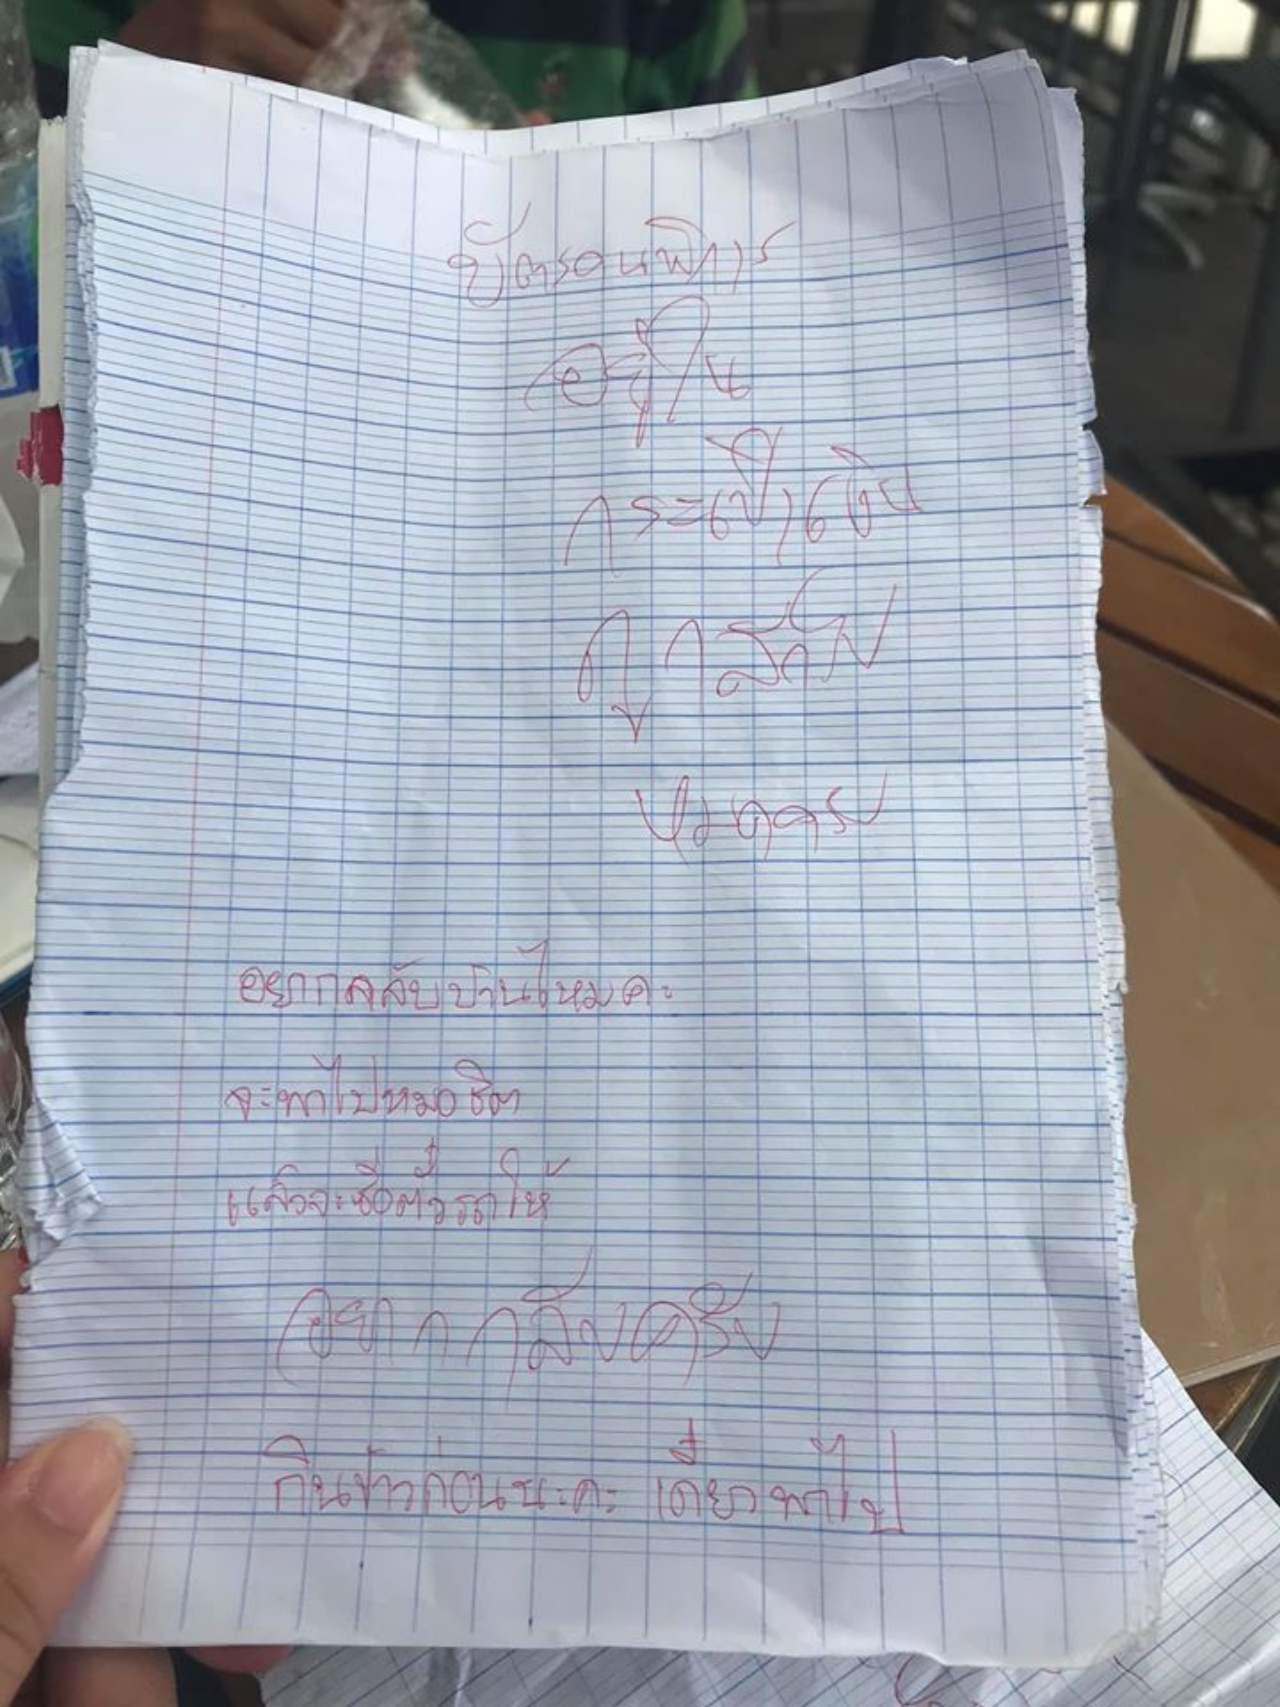 บัตรคนพิการ
อยู่ใน
กระเป๋าเงิน
อยากกลับบ้านไหมคะ
จะพาไปหมอชิต
แล้วจะซื้อตั๋วรถให้
อยากกลับครับ
กินข้าวก่อนนะคะ เดี๋ยวพาไป